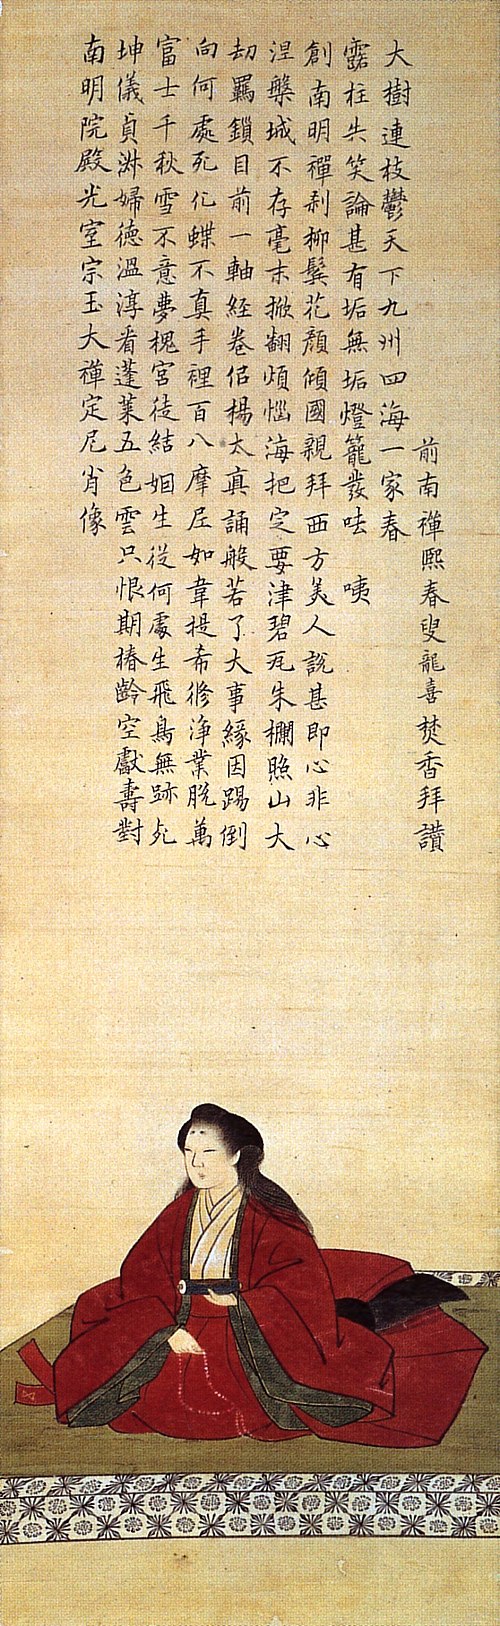 南明院殿光室宗玉大禪定尼肖像
坤儀貞淋婦徳溫淳看蓬萊五色雲只恨期椿齡空獻壽對
富士千秋雪不意夢槐宮徒結姻生從何處生飛鳥無跡死
向何處死化蝶不真手裡百八摩尼如韋提希修淨業脫萬
劫羈鎖目前一軸經卷侶楊太真誦般若了大事緣因踢倒
涅槃城不存毫末掀翻煩惱海把定要津碧瓦朱欄照山大
創南明禪刹柳鬢花顏傾國親拜西方美人說甚即心非心
露柱共笑論甚有垢無垢燈籠發呿 咦
大樹連枝鬱天下九州四海一家春
前南禪熙春叟龍喜焚香拜讚